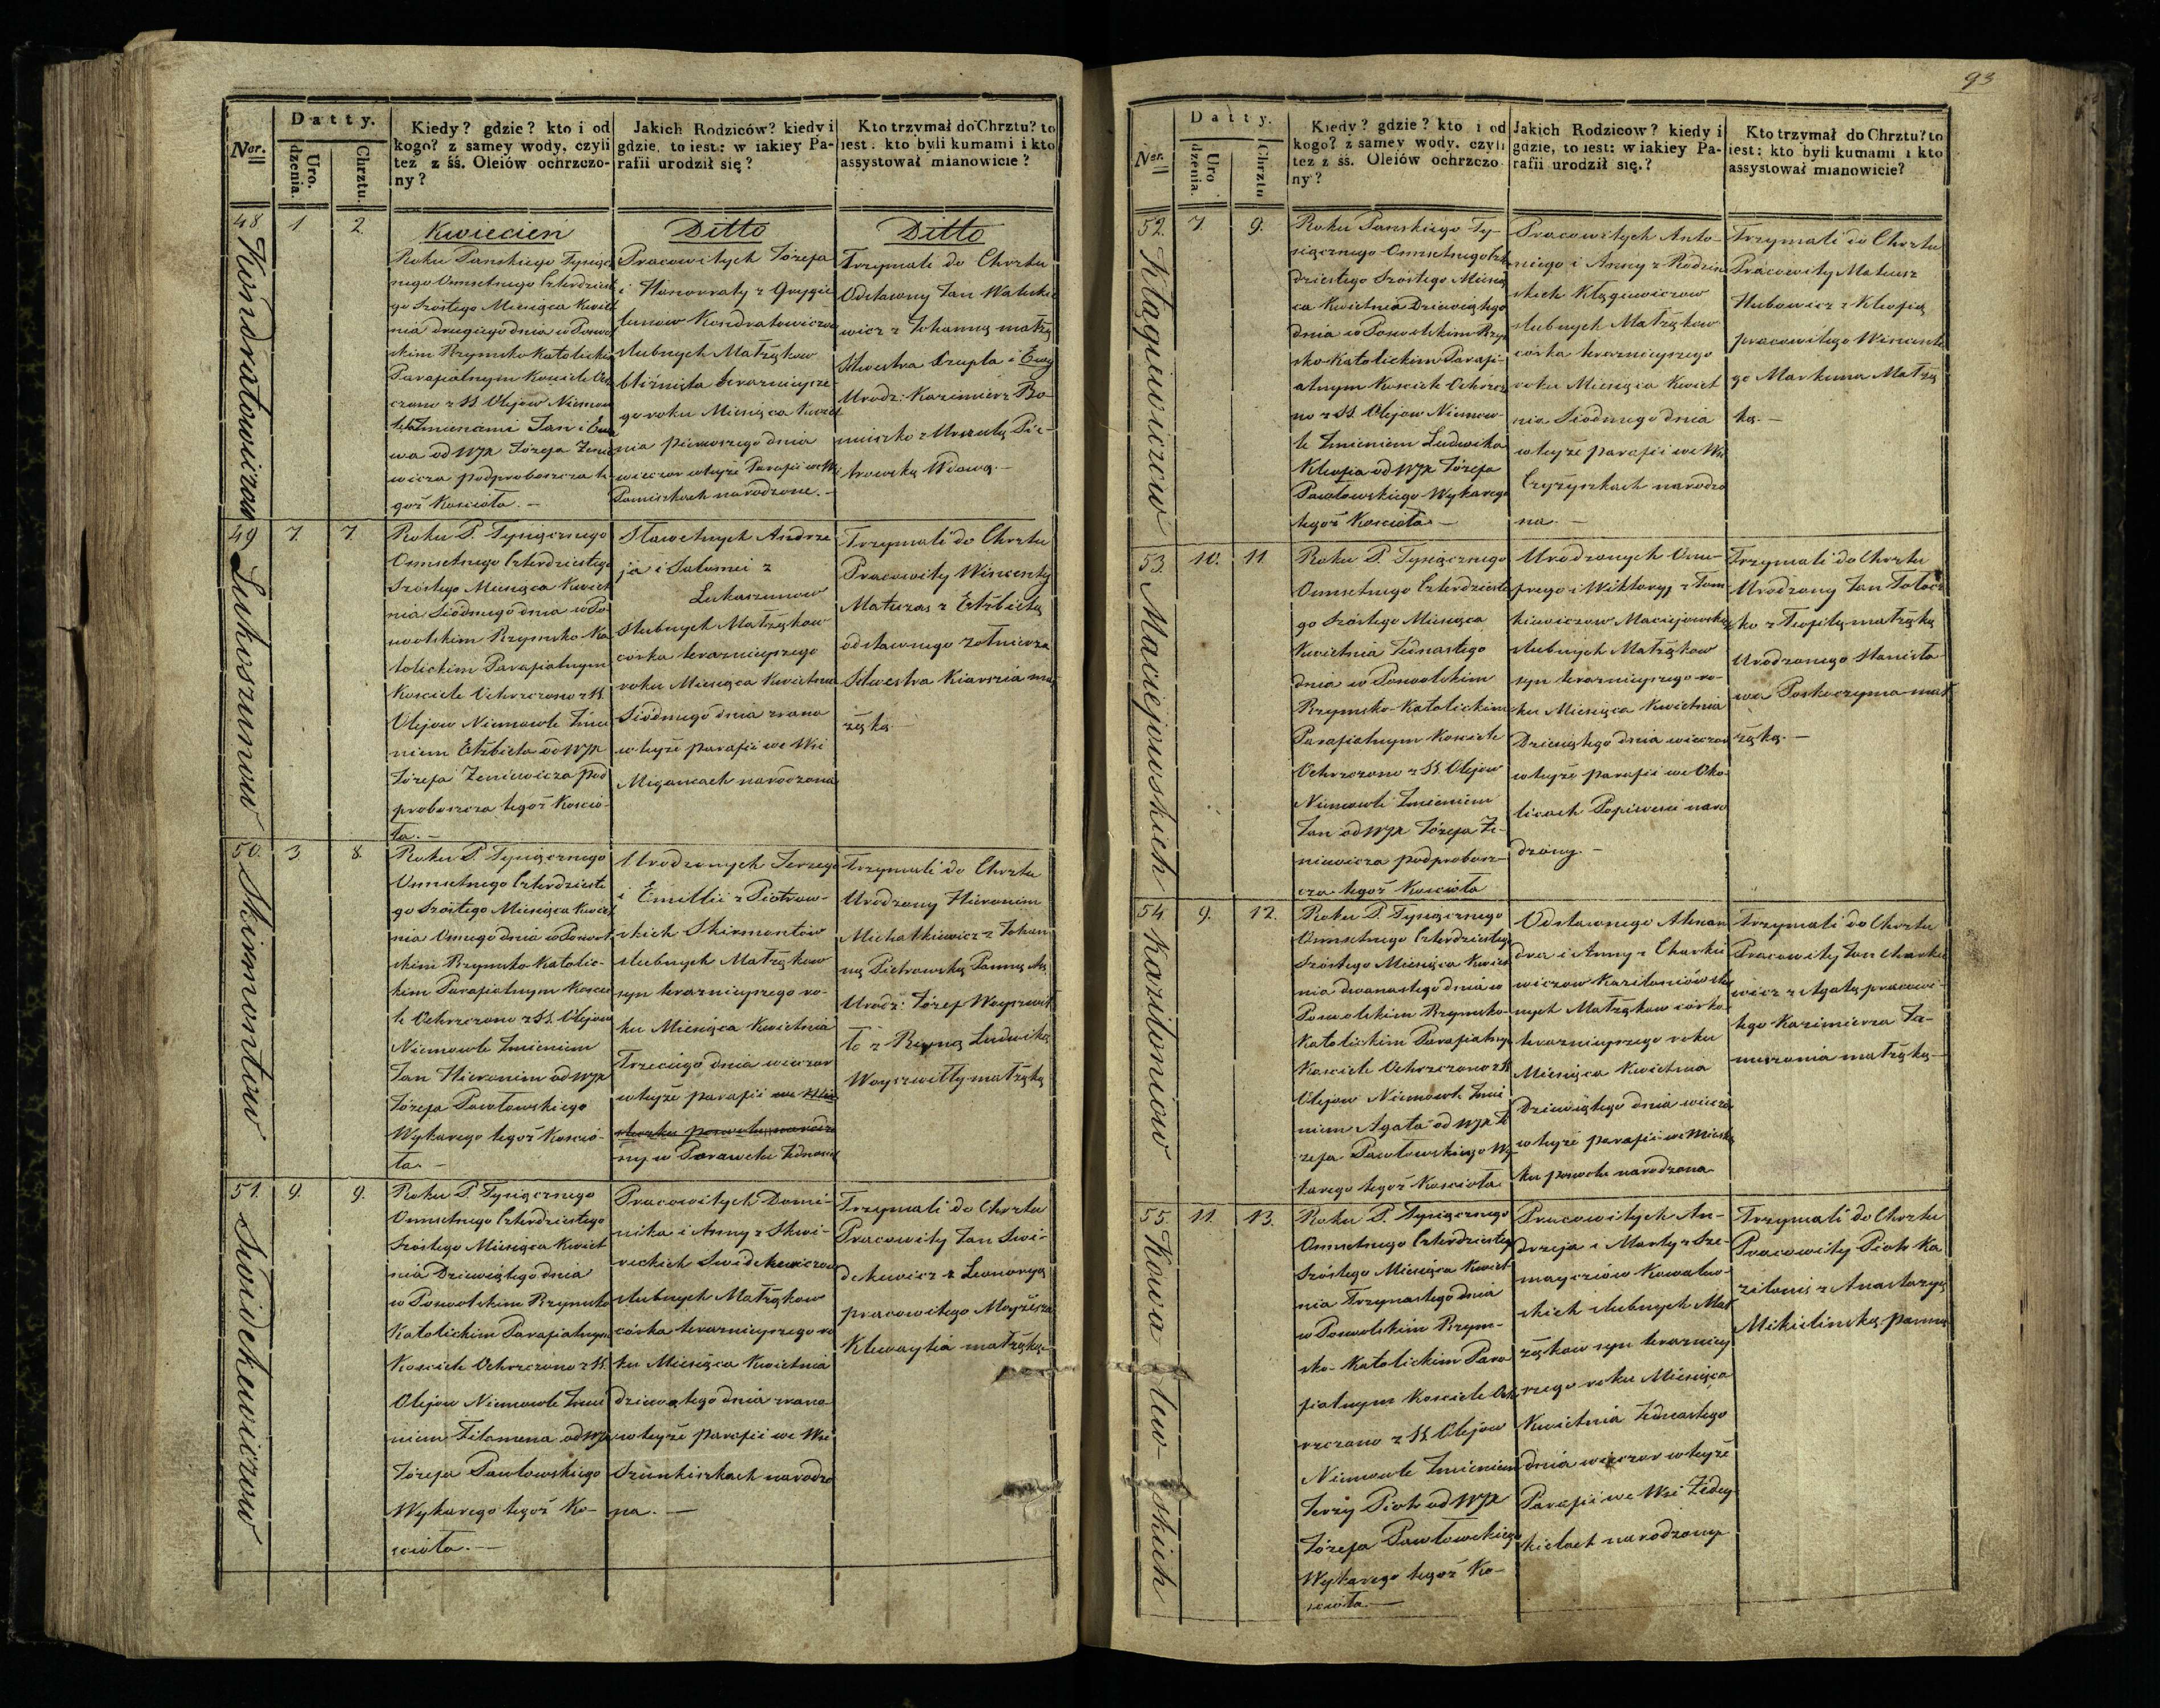 93
Datty.
Nor.
Uro.
dzenia.
Chrztu.
Kiedy? gdzie? kto i od
kogo? z samey wody, czyli
tez z śś. Oleiów ochrzczo-
ny?
Jakich Rodziców? kiedy i
gdzie, to iest: w iakiey Pa-
rafii urodził się?
Kto trzymał do Chrztu? to
iest: kto byli kumami i kto
assystował mianowicie?
48
Kondratowiczow
1
2.
Kwiecień
Roku Panskiego Tysiącz
nego Osmsetnego Czterdzieste
go Szóstego Miesiąca Kwiet
nia drugiego dnia w Poswol
skim Rzymsko Katolickim
Parafialnym Kosciele Och
czono z SS. Olejow Niemow
le Imionami Jan i Ewa
od WJX Józefa Zenie
wicza podproboszcza te
goż Kosciola. —
Ditto
Pracowitych Józefa
i Honorraty z Grygie
lunow Kondratowiczow
slubnych Małżąkow
bliznięta teraznieysze
go roku Miesiąca Kwiet
nia pierwszego dnia
wieczor w teyże Parafii we Wsi
Pamiszkach narodzone. —
Ditto
Trzymali do Chrztu
Odstawny Jan Waluke
wicz z Johanną małżą
Silwestra Szupla i Ewę
Urodz: Kazimierz Bo
nuszko z Urszulą Pie-
trowską Wdową. —
49
Lukoszunow
7.
7
Roku P. Tysiącznego
Osmsetnego Czterdziestego
Szóstego Miesiąca Kwiet
nia Siódmego dnia w Po
swolskim Rzymsko Ka
tolickim Parafialnym
Kosciele Ochrzczono z SS
Olejow Niemowle Imie
niem Elżbieta od WJX
Józefa Zeniewicza pod
proboszcza tegoż Koscio-
ła. —
Sławetnych Andrze
ja i Salomei z
Lukaszunow
Slubnych Małżąkow
córka teraznieyszego
roku Miesiąca Kwietnia
Siódmego dnia zrana
w teyże parafii we Wsi
Migancach narodzona
Trzymali do Chrztu
Pracowity Wincenty
Matuzas z Elżbietą
odstawnego żołnierza
Silwestra Kiarszia mał
żąką
50.
Skirmontow
3
8.
Roku P. Tysiącznego
Osmsetnego Czterdzieste
go Szóstego Miesiąca Kwiet
nia Osmego dnia w Poswol
skim Rzymsko Katolic-
kim Parafialnym Koscie
le Ochrzczono z SS. Olejow
Niemowle Imieniem
Jan Hieronim od WJX
Józefa Pawłowskiego
Wykarego tegoż Koscio-
ła. —
Urodzonych Jerzego
i Emillii z Piotrow-
skich Skirmontów
slubnych Małżąkow
syn teraznieyszego ro-
ku Miesiąca Kwietnia
Trzeciego dnia wieczor
w teyże parafii
Trzymali do Chrztu
Urodzony Hieronim
Michalkiewicz z Johan
ną Pietrowską Panną As
Urodz: Józef Woyszwił
ło z Ludwiką
Woyszwiłły małżąką
51.
Swidekewiczow
9.
9.
Roku P. Tysiącznego
Osmsetnego Czterdziestego
Szóstego Miesiąca Kwiet
nia Dziewiątego dnia
w Poswolskim Rzymsko
Katolickim Parafialnym
Kosciele Ochrzczono z SS
Olejow Niemowle Imie
niem Filomena od WJX
Józefa Pawłowskiego
Wykarego tegoż Ko-
scioła. —
Pracowitych Domi-
nika i Anny z Skwi-
reckich Swidekewiczow
slubnych Małżąkow
córka teraznieyszego ro
ku Miesiąca Kwietnia
dziewątego dnia zrana
w teyże parafii we Wsi
Szunkiszkach narodzo
na. —
Trzymali do Chrztu
Pracowity Jan Swi-
dekewicz z Leonorą
pracowitego Moyżesza
Klewaytia małżąką
Datty.
Nor.
Uro
dzenia.
Chrztu
Kiedy? gdzie? kto i od
kogo? z samey wody, czyli
też z śś. Oleiów ochrzczo
ny?
Jakich Rodziców? kiedy i
gdzie, to iest: w iakiey Pa-
rafii urodził się.?
Kto trzymał do Chrztu? to
iest: kto byli kumami i kto
assystował mianowicie?
52.
Klągiewiczow
7.
9.
Roku Panskiego Ty-
siącznego Osmsetnego Czte
rdziestego Szóstego Miesią
ca Kwietnia Dziewiątego
dnia w Poswolskim Rzym
sko-Katolickim Parafi-
alnym Kosciele Ochrzczo
no z SS. Olejow Niemow-
le Imieniem Ludwika
Kleofia od WJX Józefa
Pawłowskiego Wykarego
tegoż Kosciola —
Pracowitych Anto-
niego i Anny z Radzin
skich Klągiewiczow
slubnych Małżąkow
córka teraznieyszego
roku Miesiąca Kwiet
nia Siódmego dnia
w teyże parafii we Wsi
Czyżyszkach narodzo
na. —
Trzymali do Chrztu
Pracowity Mateusz
Hubowicz z Kleofią
pracowitego Wincente
go Markuna Małżą
ką. —
53.
Maciejowskich
10.
11
Roku P. Tysiącznego
Osmsetnego Czterdzieste
go Szóstego Miesiąca
Kwietnia Jednastego
dnia w Poswolskim
Rzymsko-Katolickim
Parafialnym Kosciele
Ochrzczono z SS. Olejow
Niemowle Imieniem
Jan od WJX Józefa Ze-
niewicza podprobosz-
cza tegoż Kosciola
Urodzonych Onu-
frego i Wiktoryi z Tom
kiewiczow Maciejowskich
slubnych Małżąkow
syn teraznieyszego ro-
ku Miesiąca Kwietnia
Dziesiątego dnia wieczor
w teyże parafii we Oko-
licach Popiwesu naro
dzony. —
Trzymali do Chrztu
Urodzony Jan Tołocz
ko z Teofilą małżąką
Urodzonego Stanisła-
wa Poskoczyma mał
żąką. —
54
Kaziloniow
9.
12.
Roku P. Tysiącznego
Osmsetnego Czterdziestego
Szóstego Miesiąca Kwiet
nia dwanastego dnia w
Poswolskim Rzymsko-
Katolickim Parafialnym
Kosciele Ochrzczono z SS
Olejow Niemowle Imie
niem Agata od WJX Jó
zefa Pawłowskiego Wy
karego tegoż Kosciola
Odstawnego Alexan
dra i Anny z Charke
wiczow Kaziloniów slub
nych Małżąkow córka
teraznieyszego roku
Miesiąca Kwietnia
Dziewiątego dnia wieczo
w teyże parafii we Miastecz
ku poswolu narodzona
Trzymali do Chrztu
Pracowity Jan Charke
wicz z Agatą pracowi-
tego Kazimierza Ja-
nuszania małżąką —
55.
Kowa lew- skich
11.
13.
Roku P. Tysiącznego
Osmsetnego Czterdziestego
Szóstego Miesiąca Kwiet
nia Trzynastego dnia
w Poswolskim Rzym-
sko-Katolickim Para
fialnym Kosciele Och
rzczono z SS. Olejow
Niemowle Imieniem
Jerzy Piotr od WJX
Józefa Pawłowskiego
Wykarego tegoż Ko-
scioła. —
Pracowitych An-
drzeja i Marty z Sze-
mayziów Kowalew-
skich slubnych Mał
żąkow syn terazniey
szego roku Miesiąca
Kwietnia Jednastego
dnia wieczor w teyże
Parafii we Wsi Zidey
kielach narodzony
Trzymali do Chrztu
Pracowity Piotr Ka
zilonis z Anastazyą
Mikielinską panną